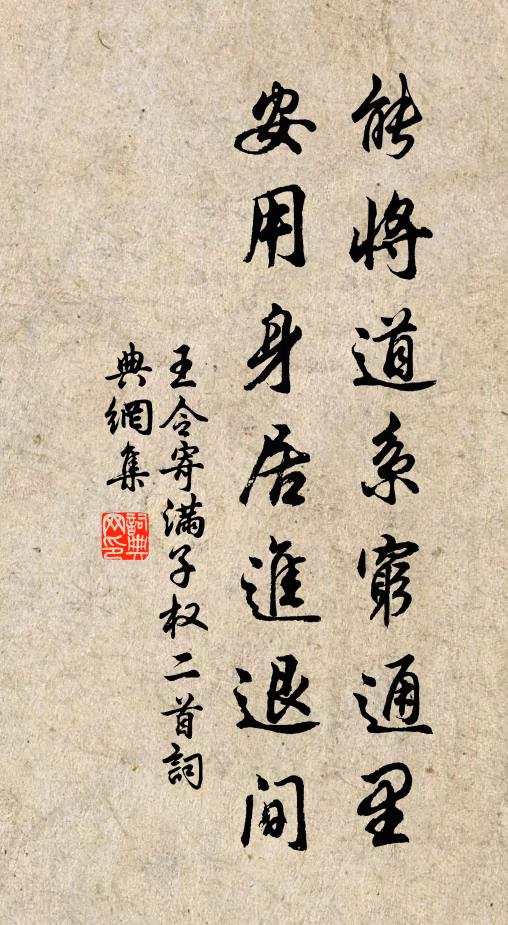 能將道系窮通里
安用身居進退间
王令寄滿子权二首詞
典網集
詞典网印